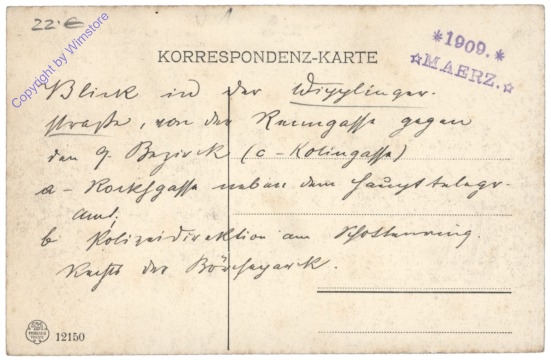 22.-€
Copyright by Wimstore
*1909.*
☆MAERZ.☆
KORRESPONDENZ-KARTE
Blick in der Wipplinger-
straße, von der Renngasse gegen
den 9. Bezirk (c - Kolingasse)
a - Rockhgasse neben dem Haupttelegr.
Amt.
b Polizeidirektion am Schottenring.
Rechts der Börsepark.
12150